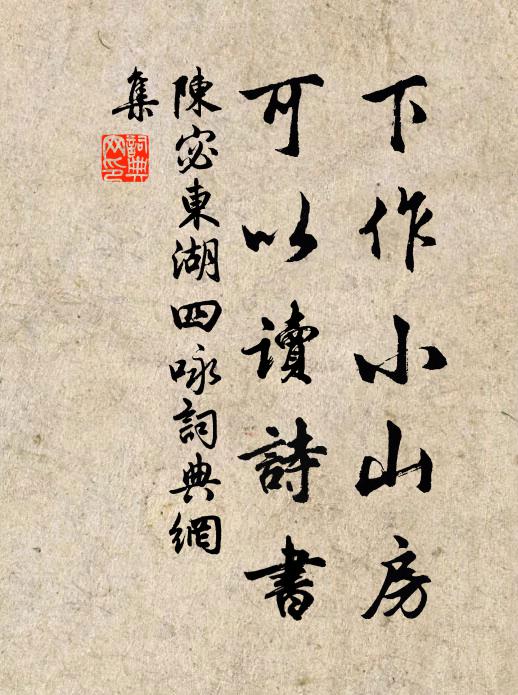 下作小山房
可以讀詩書
陳宓東湖四咏詞典網
集
詞典網印